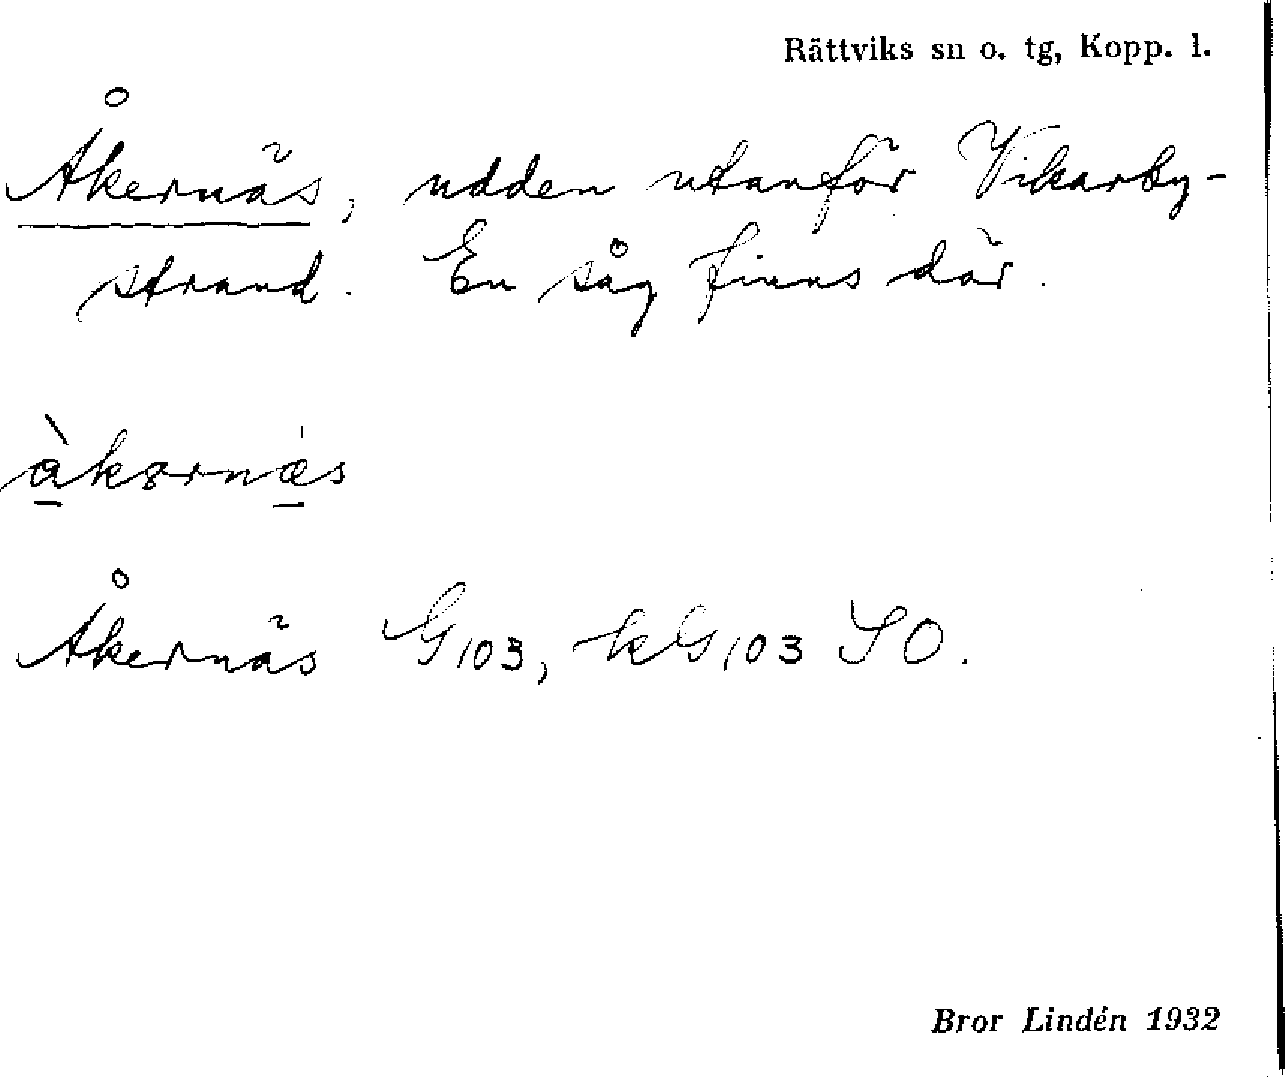 Rättviks sn o. tg, Kopp. l.
Åkernäs, udden utanför Vikarby-
strand. En såg finns där.
Åkernäs G103, kG103 SO.
Bror Lindén 1932